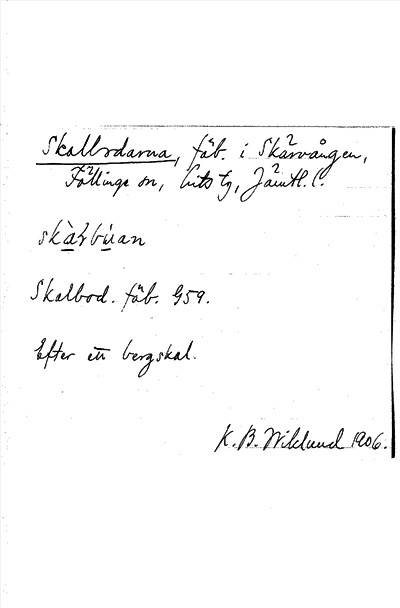 Skalbodarna, fäb. i Skärvången,
Föllinge sn, Lits tg, Jämtl. l.
skàɫbùan
Skalbod. fäb. G59.
Efter ett bergskal.
K. B. Wiklund 1906.